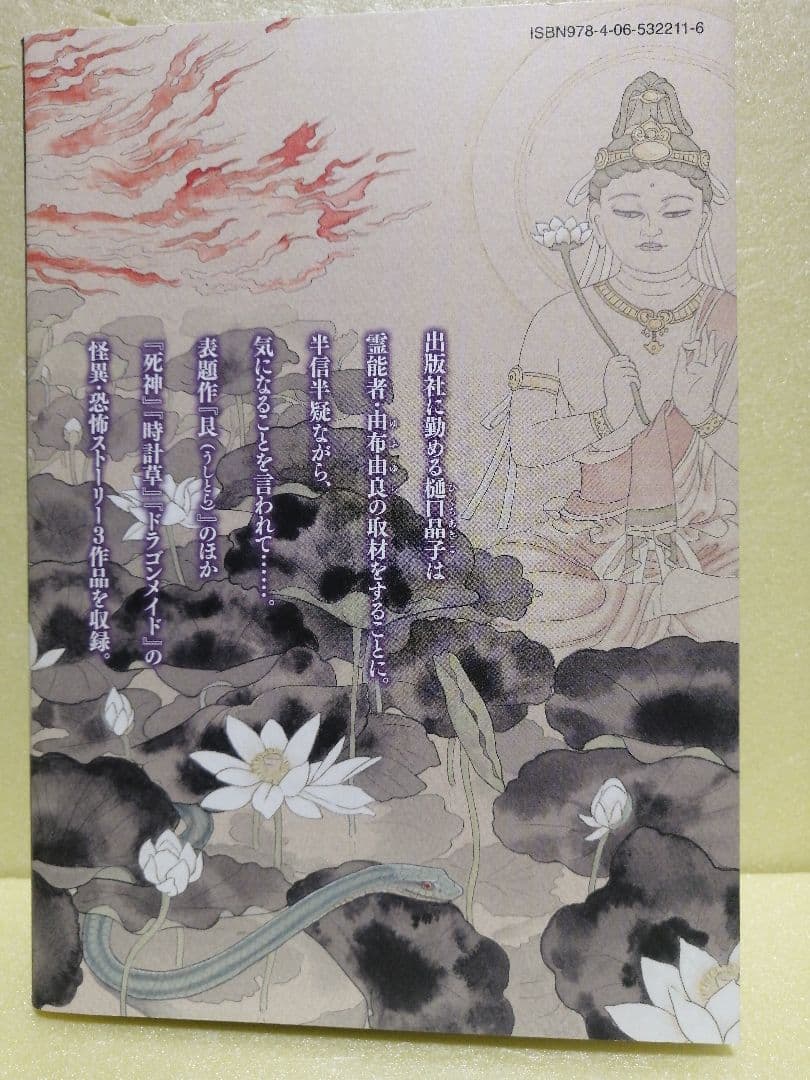 ISBN978-4-06-532211-6
出版社に勤める樋口晶子は
霊能者・由布由良の取材をすることに。
半信半疑ながら、
気になることを言われて……。
表題作『艮(うしとら)』のほか
『死神』『時計草』『ドラゴンメイド』の
怪異・恐怖ストーリー3作品を収録。